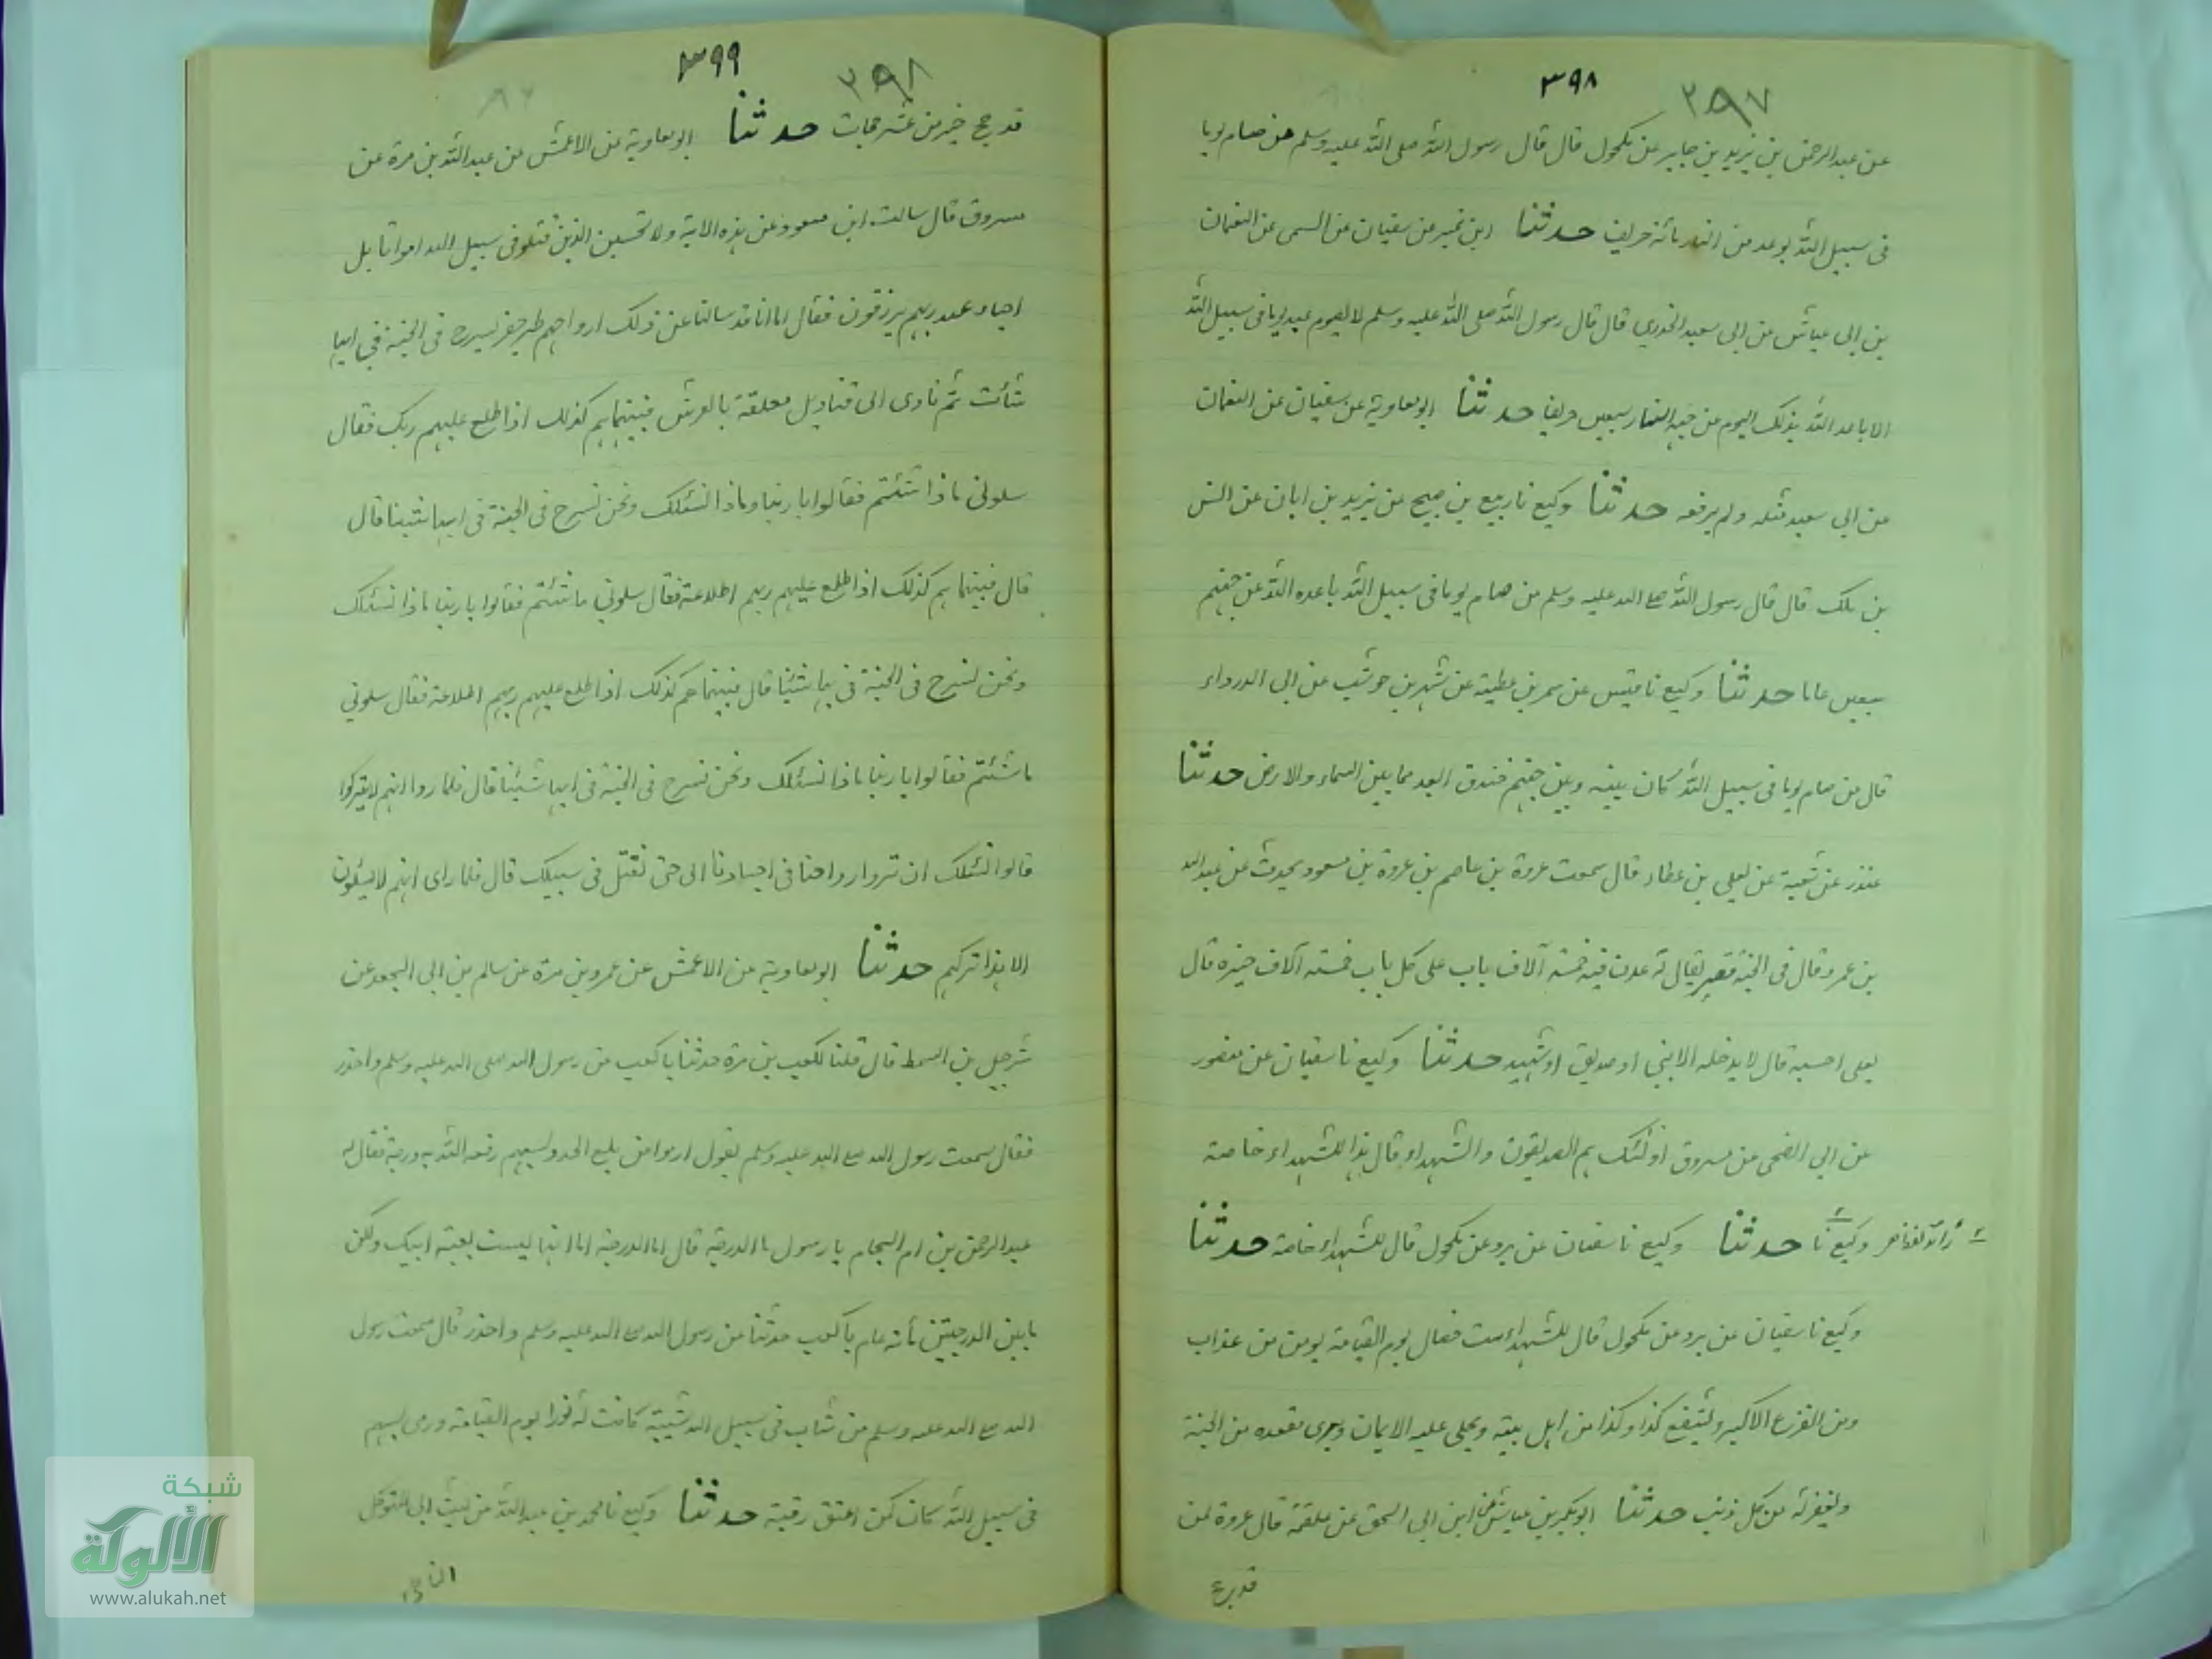 ٣٩٨ ٣٩٧
عن عبد الرحمن بن يزيد بن جابر عن مكحول قال قال رسول الله صلى الله عليه وسلم من صام يوما
فى سبيل الله بوعد من النار مائة خريف حدثنا ابن نمير عن سفيان عن السمى عن النعمان
بن ابى عياش عن ابى سعيد الخدري قال قال رسول الله صلى الله عليه وسلم لا يصوم عبد يوما فى سبيل الله
الا باعد الله بذلك اليوم عن وجهه النار سبعين خريفا حدثنا ابو معاوية عن سفيان عن النعمان
عن ابى سعيد مثله ولم يرفعه حدثنا وكيع نا ربيع بن صبيح عن يزيد بن ابان عن انس
بن ملك قال قال رسول الله صلى الله عليه وسلم من صام يوما فى سبيل الله باعده الله عن جهنم
سبعين عاما حدثنا وكيع نا قيس عن سمر بن عطية عن شهر بن حوشب عن ابى الدرداء
قال من صام يوما فى سبيل الله كان بينه وبين جهنم خندق ابعد مما بين السماء والارض حدثنا
غندر عن شعبة عن يعلى بن عطاء قال سمعت عروة بن عاصم بن عروة بن مسعود يحدث عن عبد الله
بن عمرو قال فى الجنة قصر يقال له عدن فيه خمسة آلاف باب على كل باب خمسة آلاف خيرة قال
يعلى احسبه قال لا يدخله الا نبي او صديق او شهيد حدثنا وكيع نا سفيان عن منصور
عن ابى الضحى عن مسروق اولئك هم الصديقون والشهداء قال هذا للشهداء خاصة
وكيع نا حدثنا وكيع نا سفيان عن برد عن مكحول قال للشهداء خاصة حدثنا
وكيع نا سفيان عن برد عن مكحول قال للشهداء ست خصال يوم القيامة يومن من عذاب
ومن الفزع الاكبر ويشفع كذا وكذا من اهل بيته ويحلى عليه الايمان ويرى مقعده من الجنة
ويغفر له من كل ذنب حدثنا ابو بكر بن عياش عن ابن ابى اسحق عن علقمة قال غزوة لمن
قد حج
٣٩٩ ٣٩٨
قد حج خير من عشر حجات حدثنا ابو معاوية عن الاعمش عن عبد الله بن مرة عن
مسروق قال سالت ابن مسعود عن هذه الاية ولا تحسبن الذين قتلو فى سبيل الله امواتا بل
احياء عند ربهم يرزقون فقال اما انا قد سالنا عن ذلك ارواحهم طير خضر تسرح فى الجنة فى ايها
شائت ثم تاوى الى قناديل معلقة بالعرش فبينما هم كذلك اذا طلع عليهم ربك فقال
سلونى ماذا شئتم فقالوا يا ربنا وماذا نسئلك ونحن نسرح فى الجنة فى ايها شينا قال
قال فبينما هم كذلك اذا طلع عليهم ربهم اطلاعة فقال سلونى ما شئتم فقالوا يا ربنا ماذا نسئلك
ونحن نسرح فى الجنة فى ايها شئنا قال فبينما هم كذلك اذا طلع عليهم ربهم اطلاعة فقال سلونى
ما شئتم فقالوا يا ربنا ماذا نسئلك ونحن نسرح فى الجنة فى ايها شئنا قال فلما روا انهم لا يتركوا
قالوا نسئلك ان ترد ارواحنا فى اجسادنا الى حتى نقتل فى سبيلك قال فلما راى انهم لا يسئلون
الا هذا تركهم حدثنا ابو معاوية عن الاعمش عن عمرو بن مرة عن سالم بن ابى الجعد عن
شرحبيل بن السمط قال قلنا لكعب بن مرة حدثنا يا كعب عن رسول الله صلى الله عليه وسلم واحذر
فقال سمعت رسول الله صلى الله عليه وسلم يقول ارموا من بلغ العدو بسهم رفعه الله به درجة فقال له
عبد الرحمن بن ام النحام يا رسول ما الدرجة قال اما الدرجة اما انها ليست بعتبة ابيك ولكن
ما بين الدرجتين مأته عام يا كعب حدثنا عن رسول الله صلى الله عليه وسلم واحذر قال سمعت رسول
الله صلى الله عليه وسلم من شاب فى سبيل الله شيبة كانت له نورا يوم القيامة ورمى بسهم
فى سبيل الله كان كمن اعتق رقبة حدثنا وكيع نا محمد بن عبد الله عن ليث ابى المتوكل
الناجى
شبكة
الألوكة
www.alukah.net